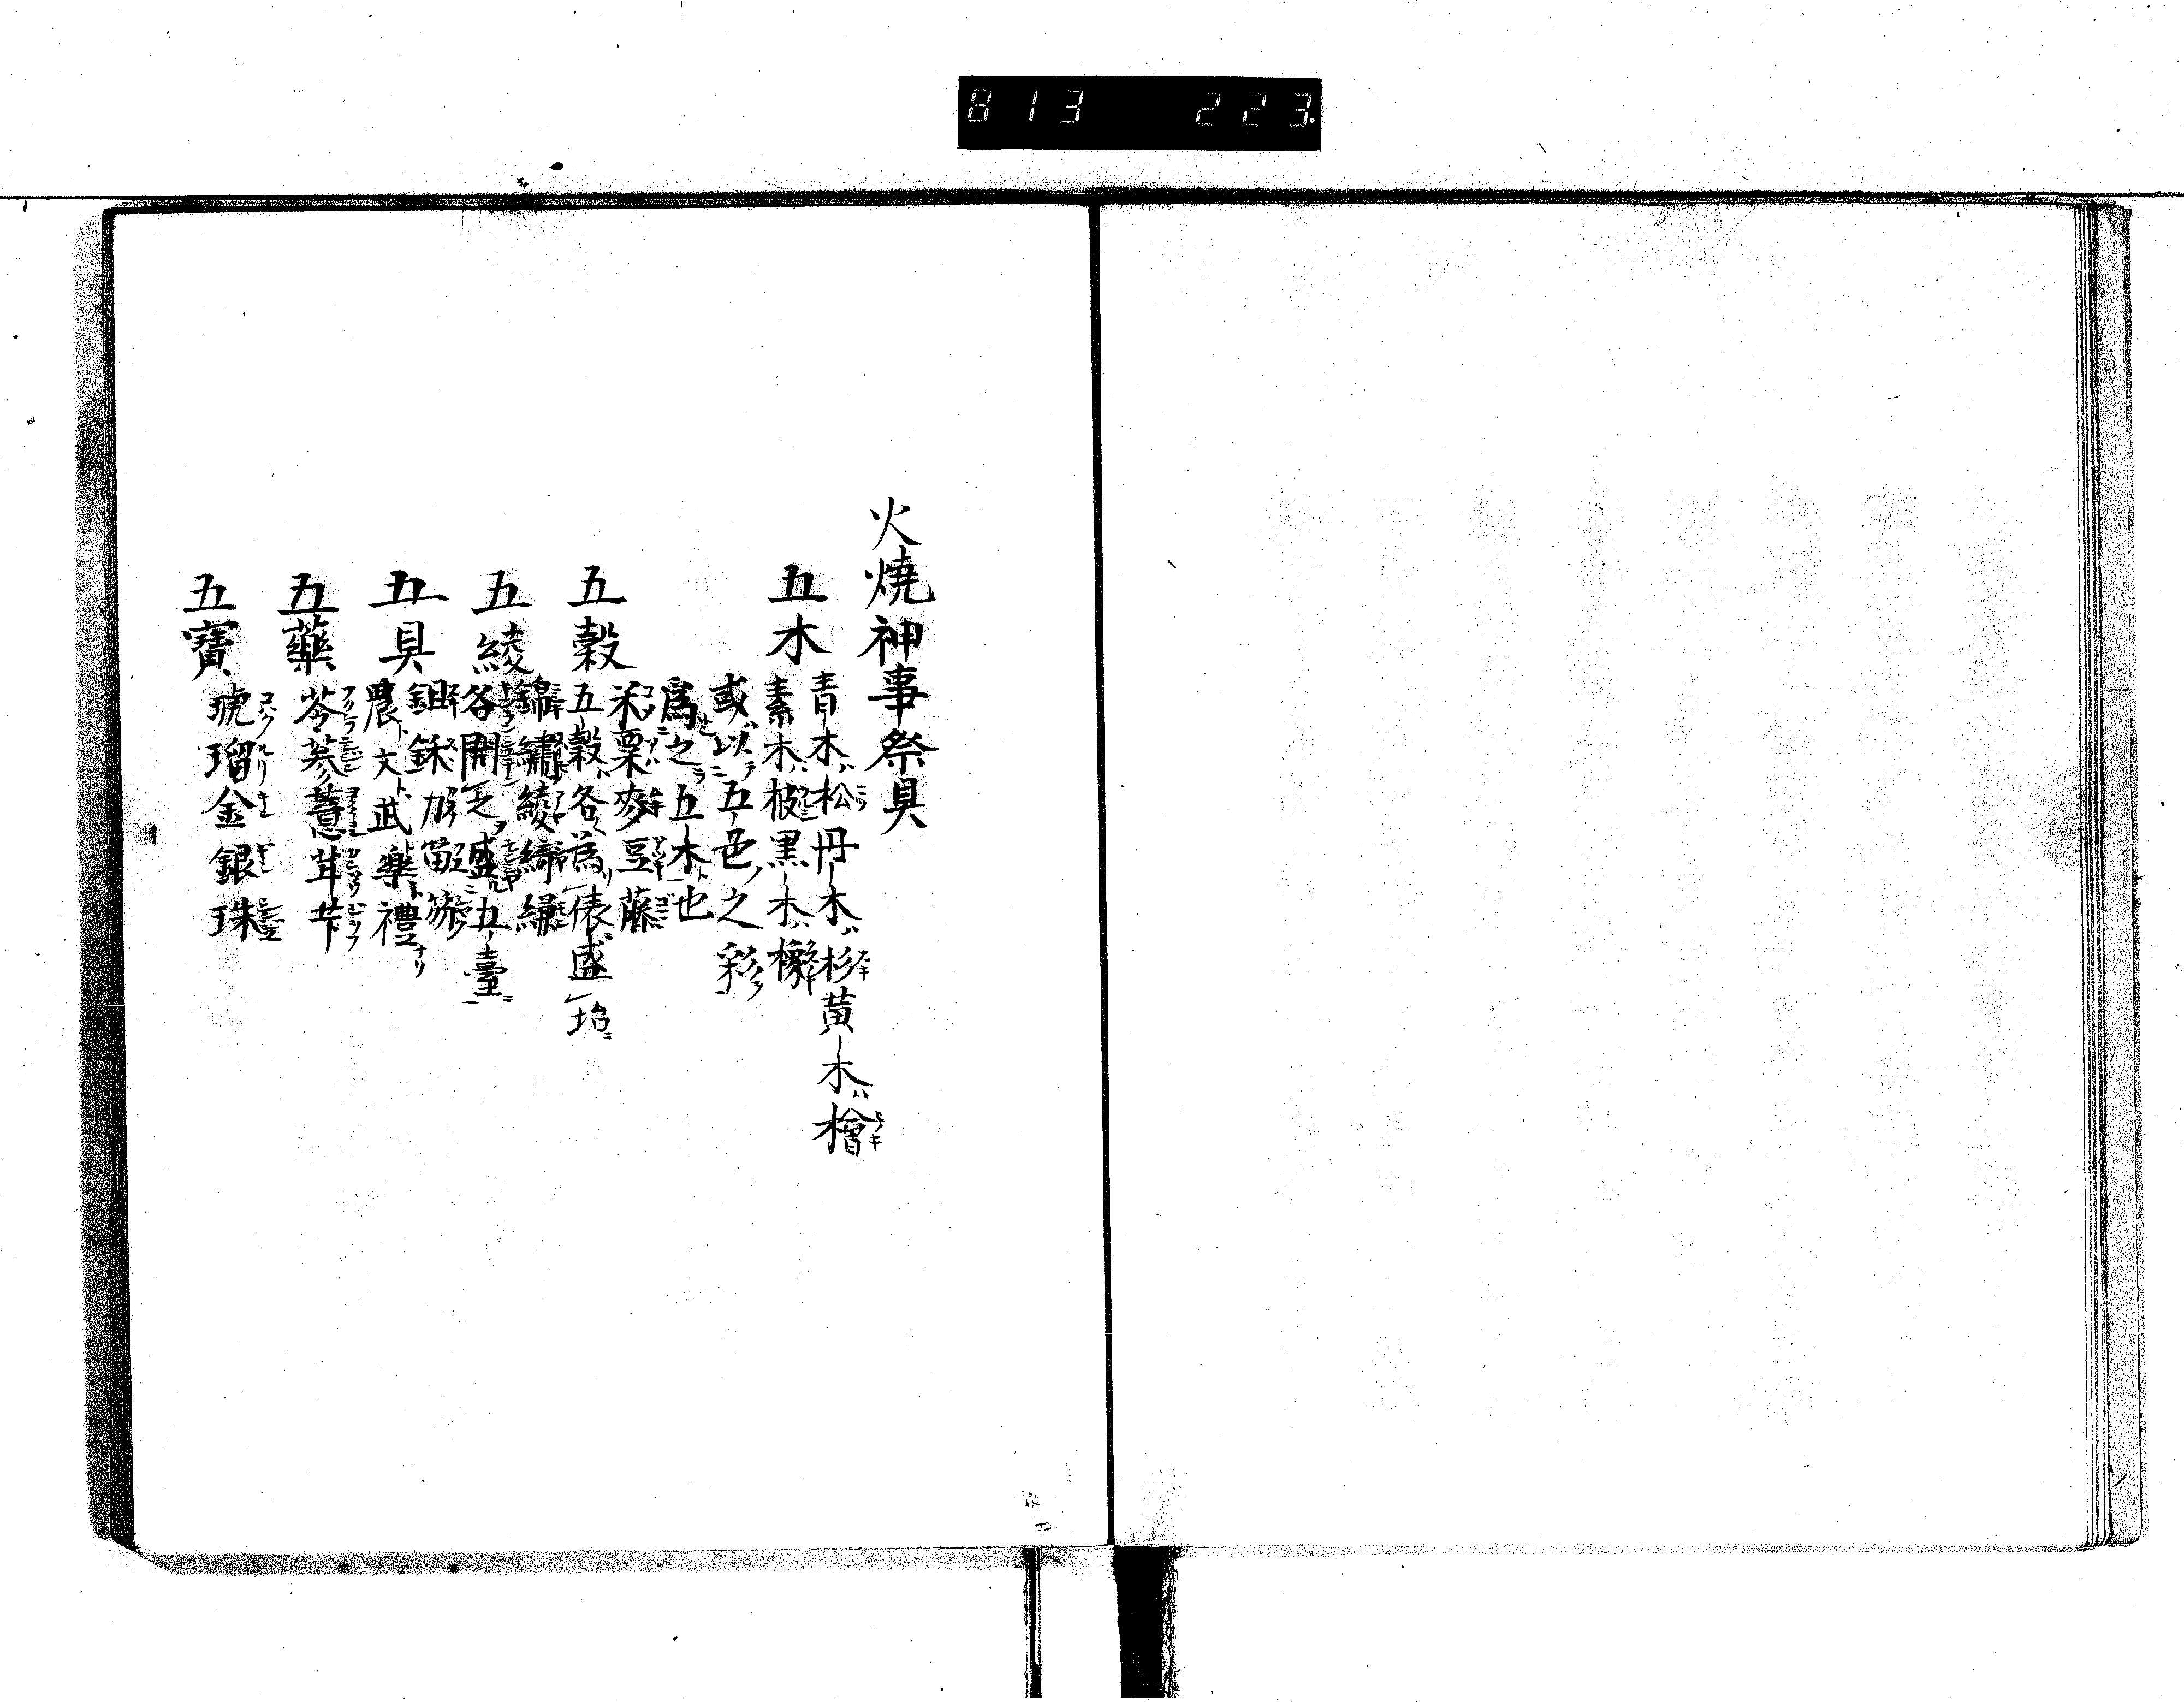 813 223
火燒神事祭具
五木
青木ハ松丹木ハ杉黃木ハ檜
素木ハ柀黒木ハ橡
或ハ以テ五色ノ之彩ヲ
爲之ヲ五木ト也
五穀
米粟麥豆藤
五穀ハ各為リ俵ニ盛坮ニ
五綾
錦繡綾綺縑
各開之ヲ盛五臺ニ
五具
鉏鉄
農ト文ト武ト樂ト禮ナリ
五藥
苓
五寶
琥瑠金銀珠